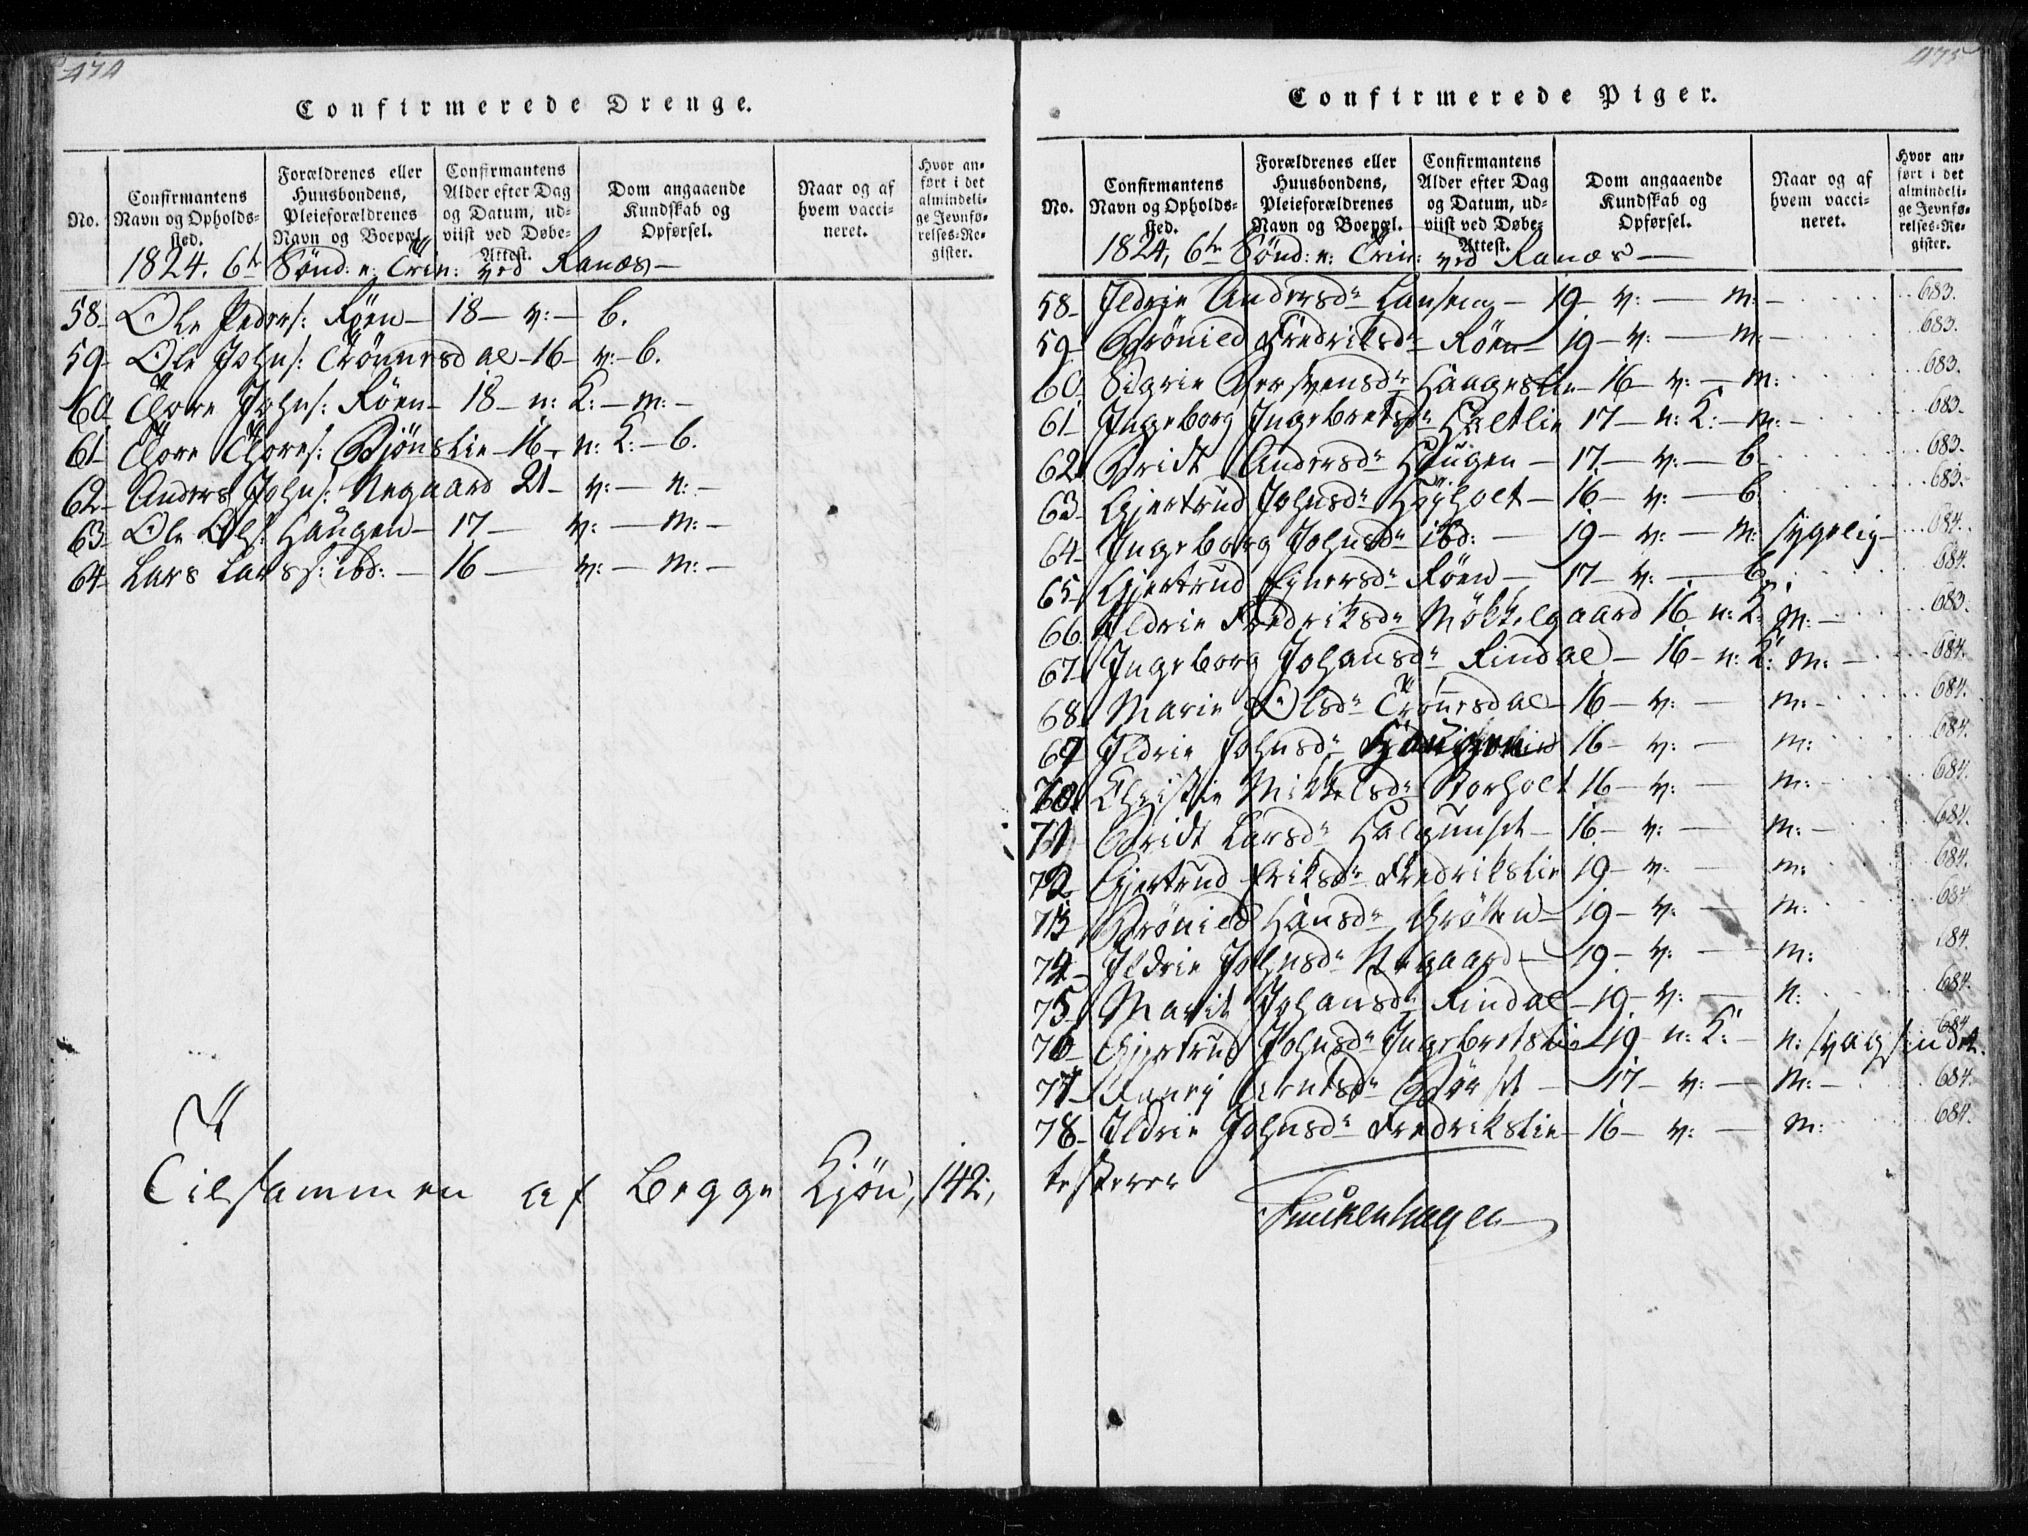 474
Confirmerede Drenge.
No.
Confirmantens Navn og Opholds-sted.
Forældrenes eller Huusbondens, Pleieforældrenes Navn og Boepæl.
Confirmantens Alder efter Dag og Datum, ud-viist ved Døbe-Attest.
Dom angaaende Kundskab og Opførsel.
Naar og af hvem vacci-neret.
Hvor an-ført i det almindeli-ge Jevnfø-relses-Re-gister.
1824. 6te Sønd: e: Trin: ved Ranæs —
58- Ole Peders: Röen - 18 - v: - b.
59- Ole Johns: Trönnesdal - 16 - v: - b.
60- Thore Johns: Röen - 18 - n: K: - m: -
61- Thore Thores: Björslie - 16 - n: K: - b.
62- Anders Johns: Negaard 21 - v: - n: -
63- Ole Ols: Haugen - 17 - v: - m: -
64- Lars Larss: ibd: - 16 - v: - m: -
Tilsammen af Begge Kjön, 142,
475
Confirmerede Piger.
No.
Confirmantens Navn og Opholds-sted.
Forældrenes eller Huusbondens, Pleieforældrenes Navn og Boepæl.
Confirmantens Alder efter Dag og Datum, ud-viist ved Døbe-Attest.
Dom angaaende Kundskab og Opførsel.
Naar og af hvem vacci-neret.
Hvor an-ført i det almindeli-ge Jevnfø-relses-Re-gister.
1824, 6te Sønd: e: Trin: ved Ranæs —
58- Ildrie Andersdr Lansem - 19 - v: - m: - 683.
59- Brönild Fredriksdr Röen - 19 - v: - m: - 683.
60- Sigrie Bersvensdr Haageslie - 16 - v: - m: 683.
61- Ingeborg Ingebretsdr Holtlie 17 - n: K: - m: - 683.
62- Bridt Andersdr Haugen - 17 - v: - b - 683.
63- Gjertrud Johnsdr Höyholt - 16 - v: - b 683.
64- Ingeborg Johnsdr ibd: - 19 - v: - m: sygelig - 684.
65- Gjertrud Einersdr Röen - 17 - v: - b. 684.
66- Ildrie Fredriksdr Mökkelgaard 16 - n: K: m: - 683.
67- Ingeborg Johansdr Rindal - 16 - n: K: m: - 684.
68- Marie Olsdr Trönnesdal - 16 - v: - m: - 684.
69 Ildrie Johnsdr 16 - v: - m: 684.
70 Christie Mikkelsdr Storholt 16 - v: - m: - 684.
71 Bridt Larsdr Halgunset - 16 - v: - m: - 684.
72 Gjertrud Eriksdr Fredrikslie 19 - v: - m: 684.
73 Brönild Hansdr Grötten - 19 - v: - m: 684
74- Ildrie Johnsdr Negaard - 19 - v: - m: 684.
75- Marit Johansdr Rindal - 19 - v: - n: 684.
76- Gjertrud Johnsdr Ingebretslie 19 - n: K: - n: svagsindet. 684
77- Arntsdr Börset - 17 - v: - m: - 684.
78- Ildrie Johnsdr Fredrikslie - 16 - v: - m: 684.
testerer
Finckenhagen